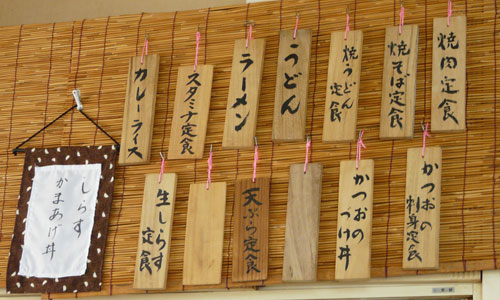 焼肉定食
焼そば定食
焼うどん
定食
うどん
ラーメン
スタミナ定食
カレーライス
かつおの
刺身定食
かつおの
づけ丼
天ぷら定食
生しらす
定食
しらす
かまあげ丼